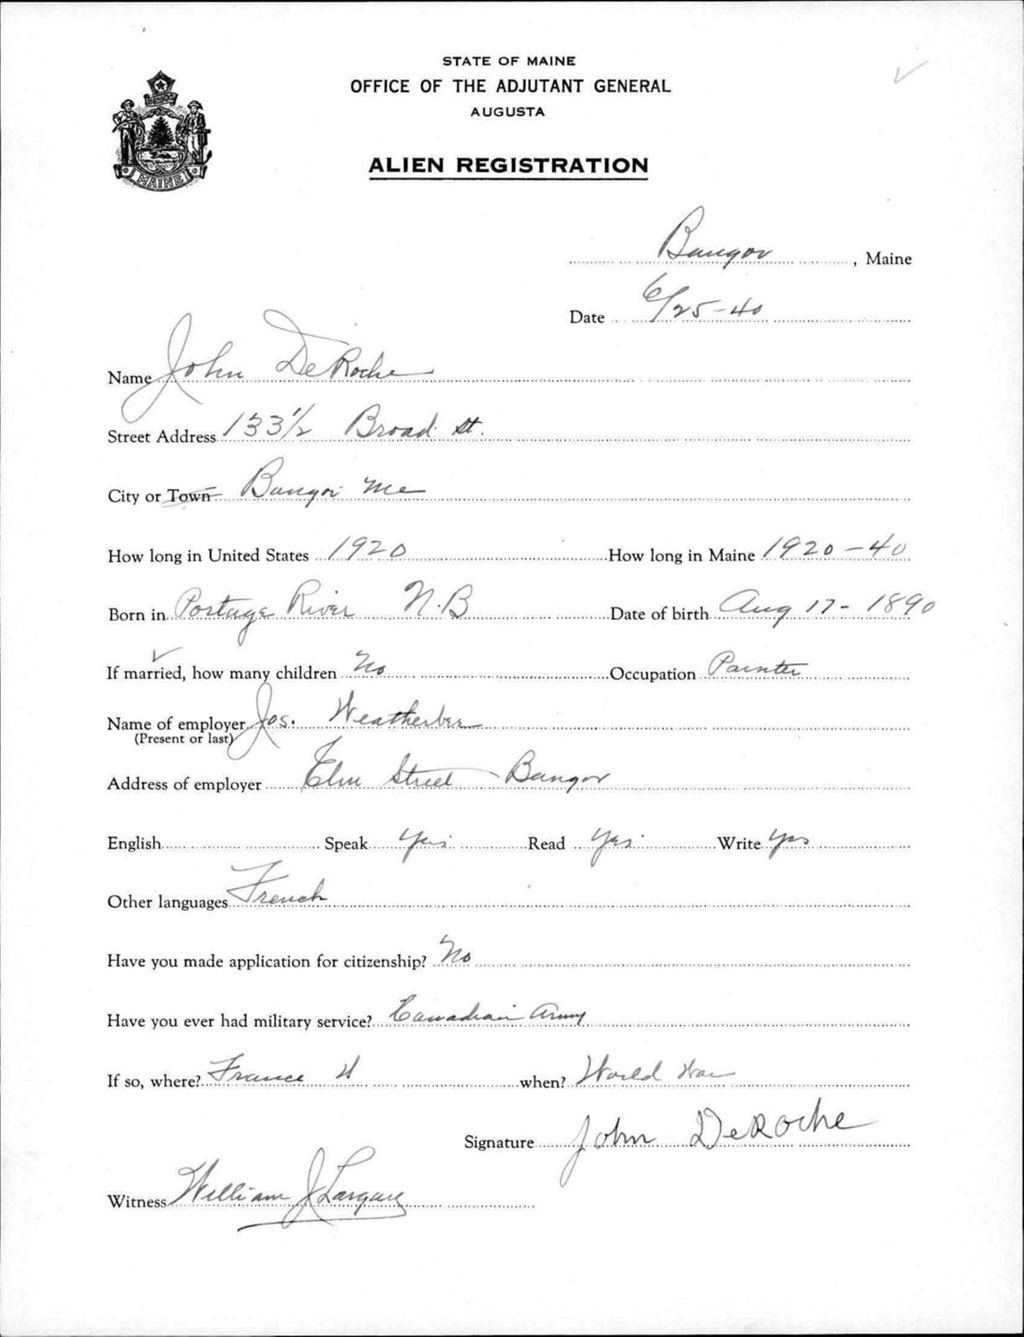 STATE OF MAINE
OFFICE OF THE ADJUTANT GENERAL
AUGUSTA
ALIEN REGISTRATION
MAINE
Bangor, Maine
Date 6/25-40
Name John DeRoche
Street Address 133 1/2 Broad St.
City or Town Bangor Me
How long in United States 1920 How long in Maine 1920-40
Born in Portage River N.B Date of birth Aug 17-1890
If married, how many children No Occupation Painter
Name of employer Jos. Weatherbee
(Present or last)
Address of employer Elm Street - Bangor
English Speak Yes Read Yes Write Yes
Other languages French
Have you made application for citizenship? No
Have you ever had military service? Canadian Army
If so, where? France when? World War
Signature John DeRoche
Witness William J